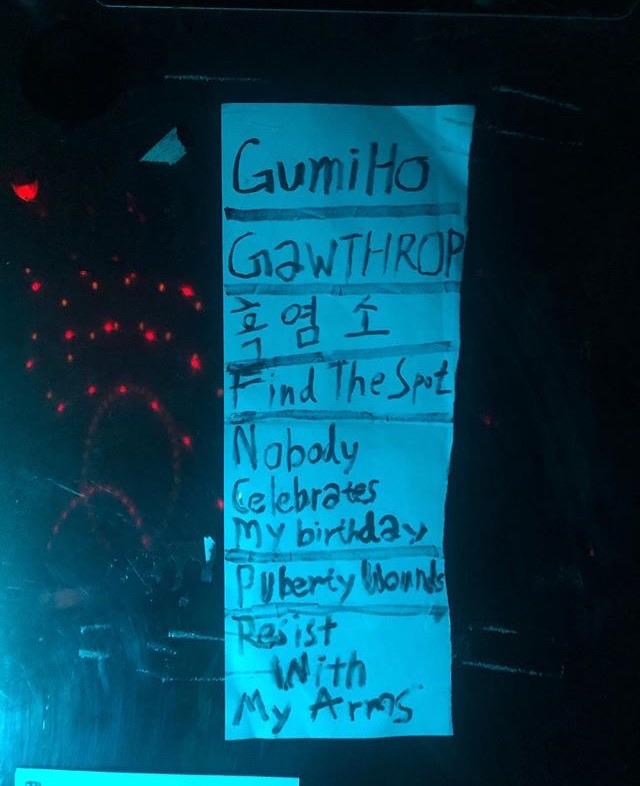 GumiHo
GawTHROP
흑염소
Find The Spot
Nobody
Celebrates
My birthday
Puberty Wounds
Resist
With
My Arms